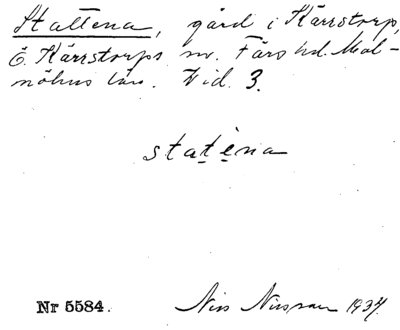 Stattena, gård i Kärrstorp,
Ö. Kärrstorps sn. Färs hd. Mal-
möhus län. Fid. 3.
statèna
Nr 5584. Nils Nilsson 1934.